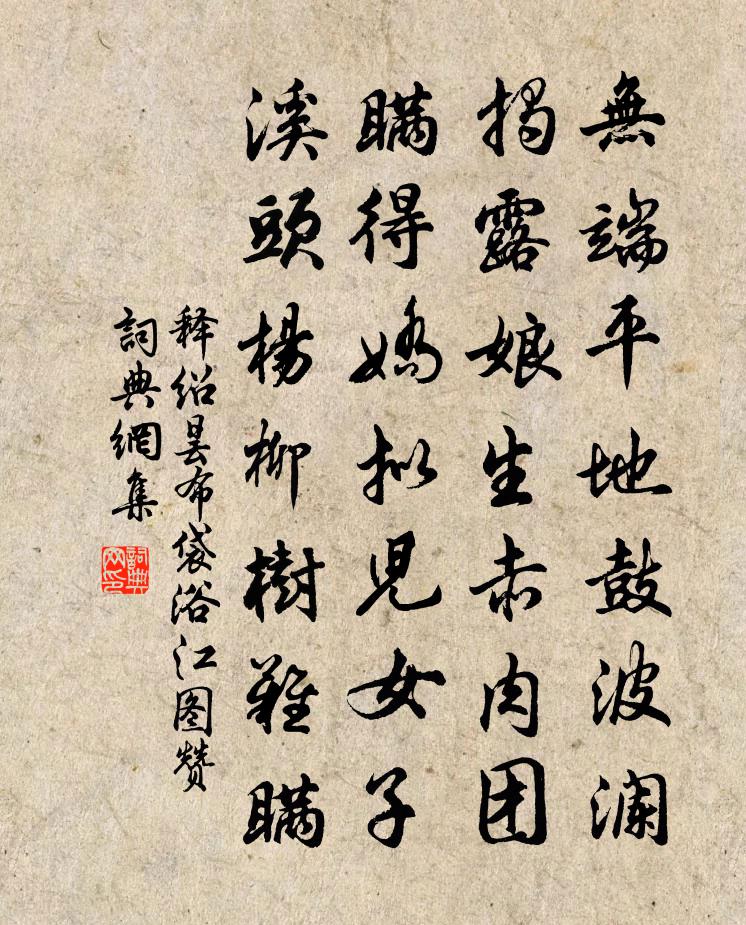 無端平地鼓波澜
揭露娘生赤肉团
瞞得嬌拟児女子
溪頭楊柳樹難瞞
释绍昙布袋浴江图赞
詞典網集
詞典网印